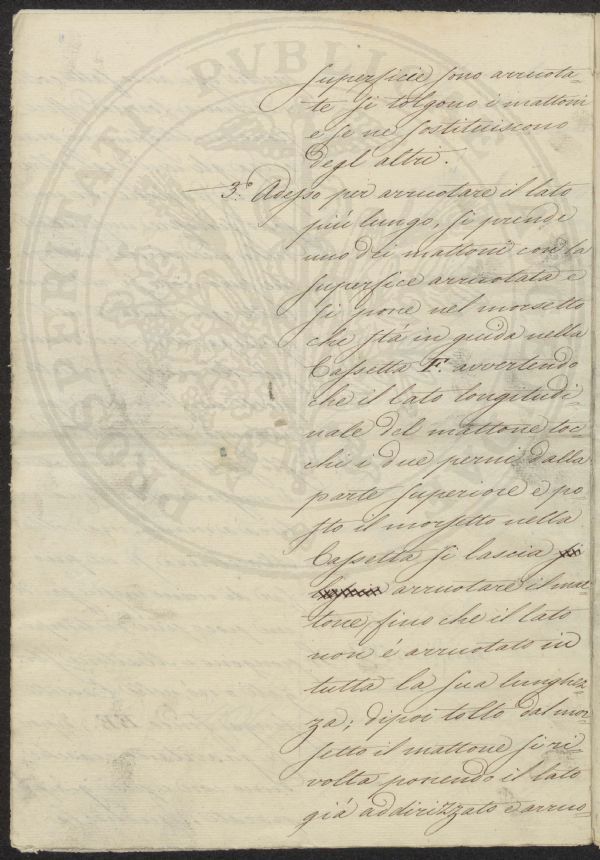 superficie sono arruota-
te si tolgono i mattoni
e se ne sostituiscono
degl'altri.
3.° Adesso per arruotare il lato
più lungo, si prende
uno dei mattoni con la
superfice arruotata e
si pone nel morsetto
che stá in guida nella
Cassetta F. avvertendo
che il lato longitudi-
nale del mattone toc-
chi i due perni dalla
parte superiore e po-
sto il morsetto nella
Cassetta si lascia
arruotare il mat-
tone, fino che il lato
non é arruotato in
tutta la sua lunghez-
za; dipoi tolto dal mor-
setto il mattone si ri-
volta ponendo il lato
giá addirizzato e arruo-
PROSPERITATI PVBLICAE